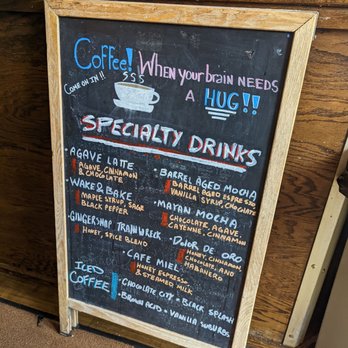 Coffee! When your brain needs
Come on in!!
a HUG!!
Specialty Drinks
• Agave Latte
Agave, Cinnamon
& Chocolate
• Wake & Bake
Maple Syrup, Sage
Black Pepper
• Gingersnap Trainwreck
Honey, Spice Blend
• Barrel Aged Mocha
Barrel Aged Espresso
Vanilla Syrup, Chocolate
• Mayan Mocha
Chocolate, Agave,
Cayenne, Cinnamon
• Dolor de Oro
Honey, Cinnamon,
Chocolate, and
Habanero
• Cafe Miel
Honey, Espresso
& Steamed Milk
Iced
Coffee
• Chocolate City • Black Splash
• Brown Acid • Vanilla Suburbs